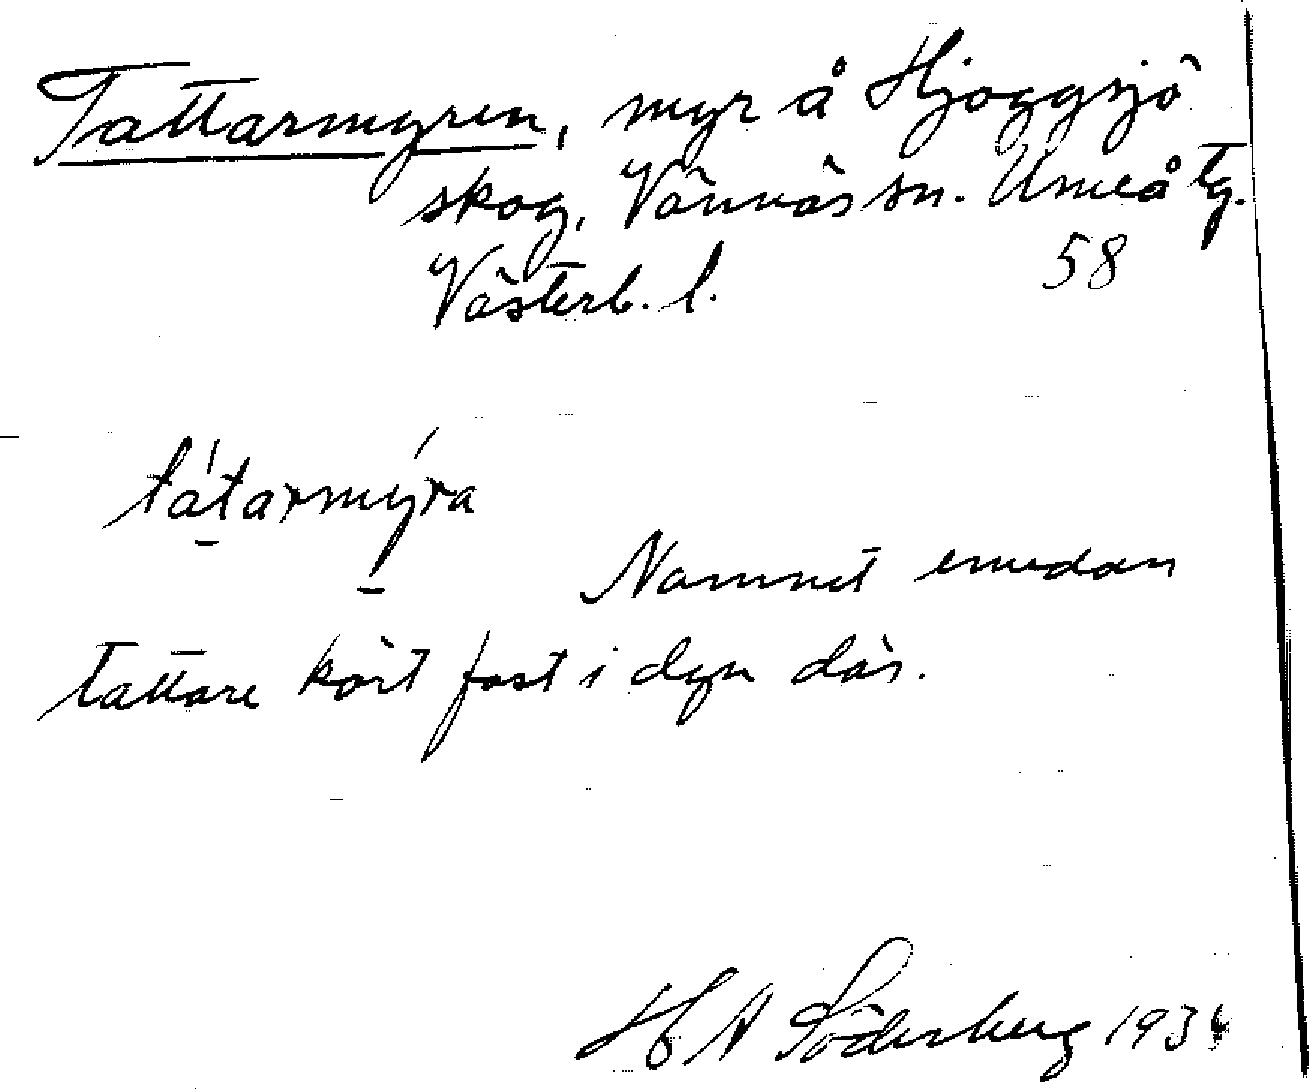 Tattarmyren, myr å Hjoggsjö
skog, Vännäs sn. Umeå tg.
Västerb. l. 58
tátarmýra
Namnet emedan
tattare kört fast i dyn där.
H A Söderberg